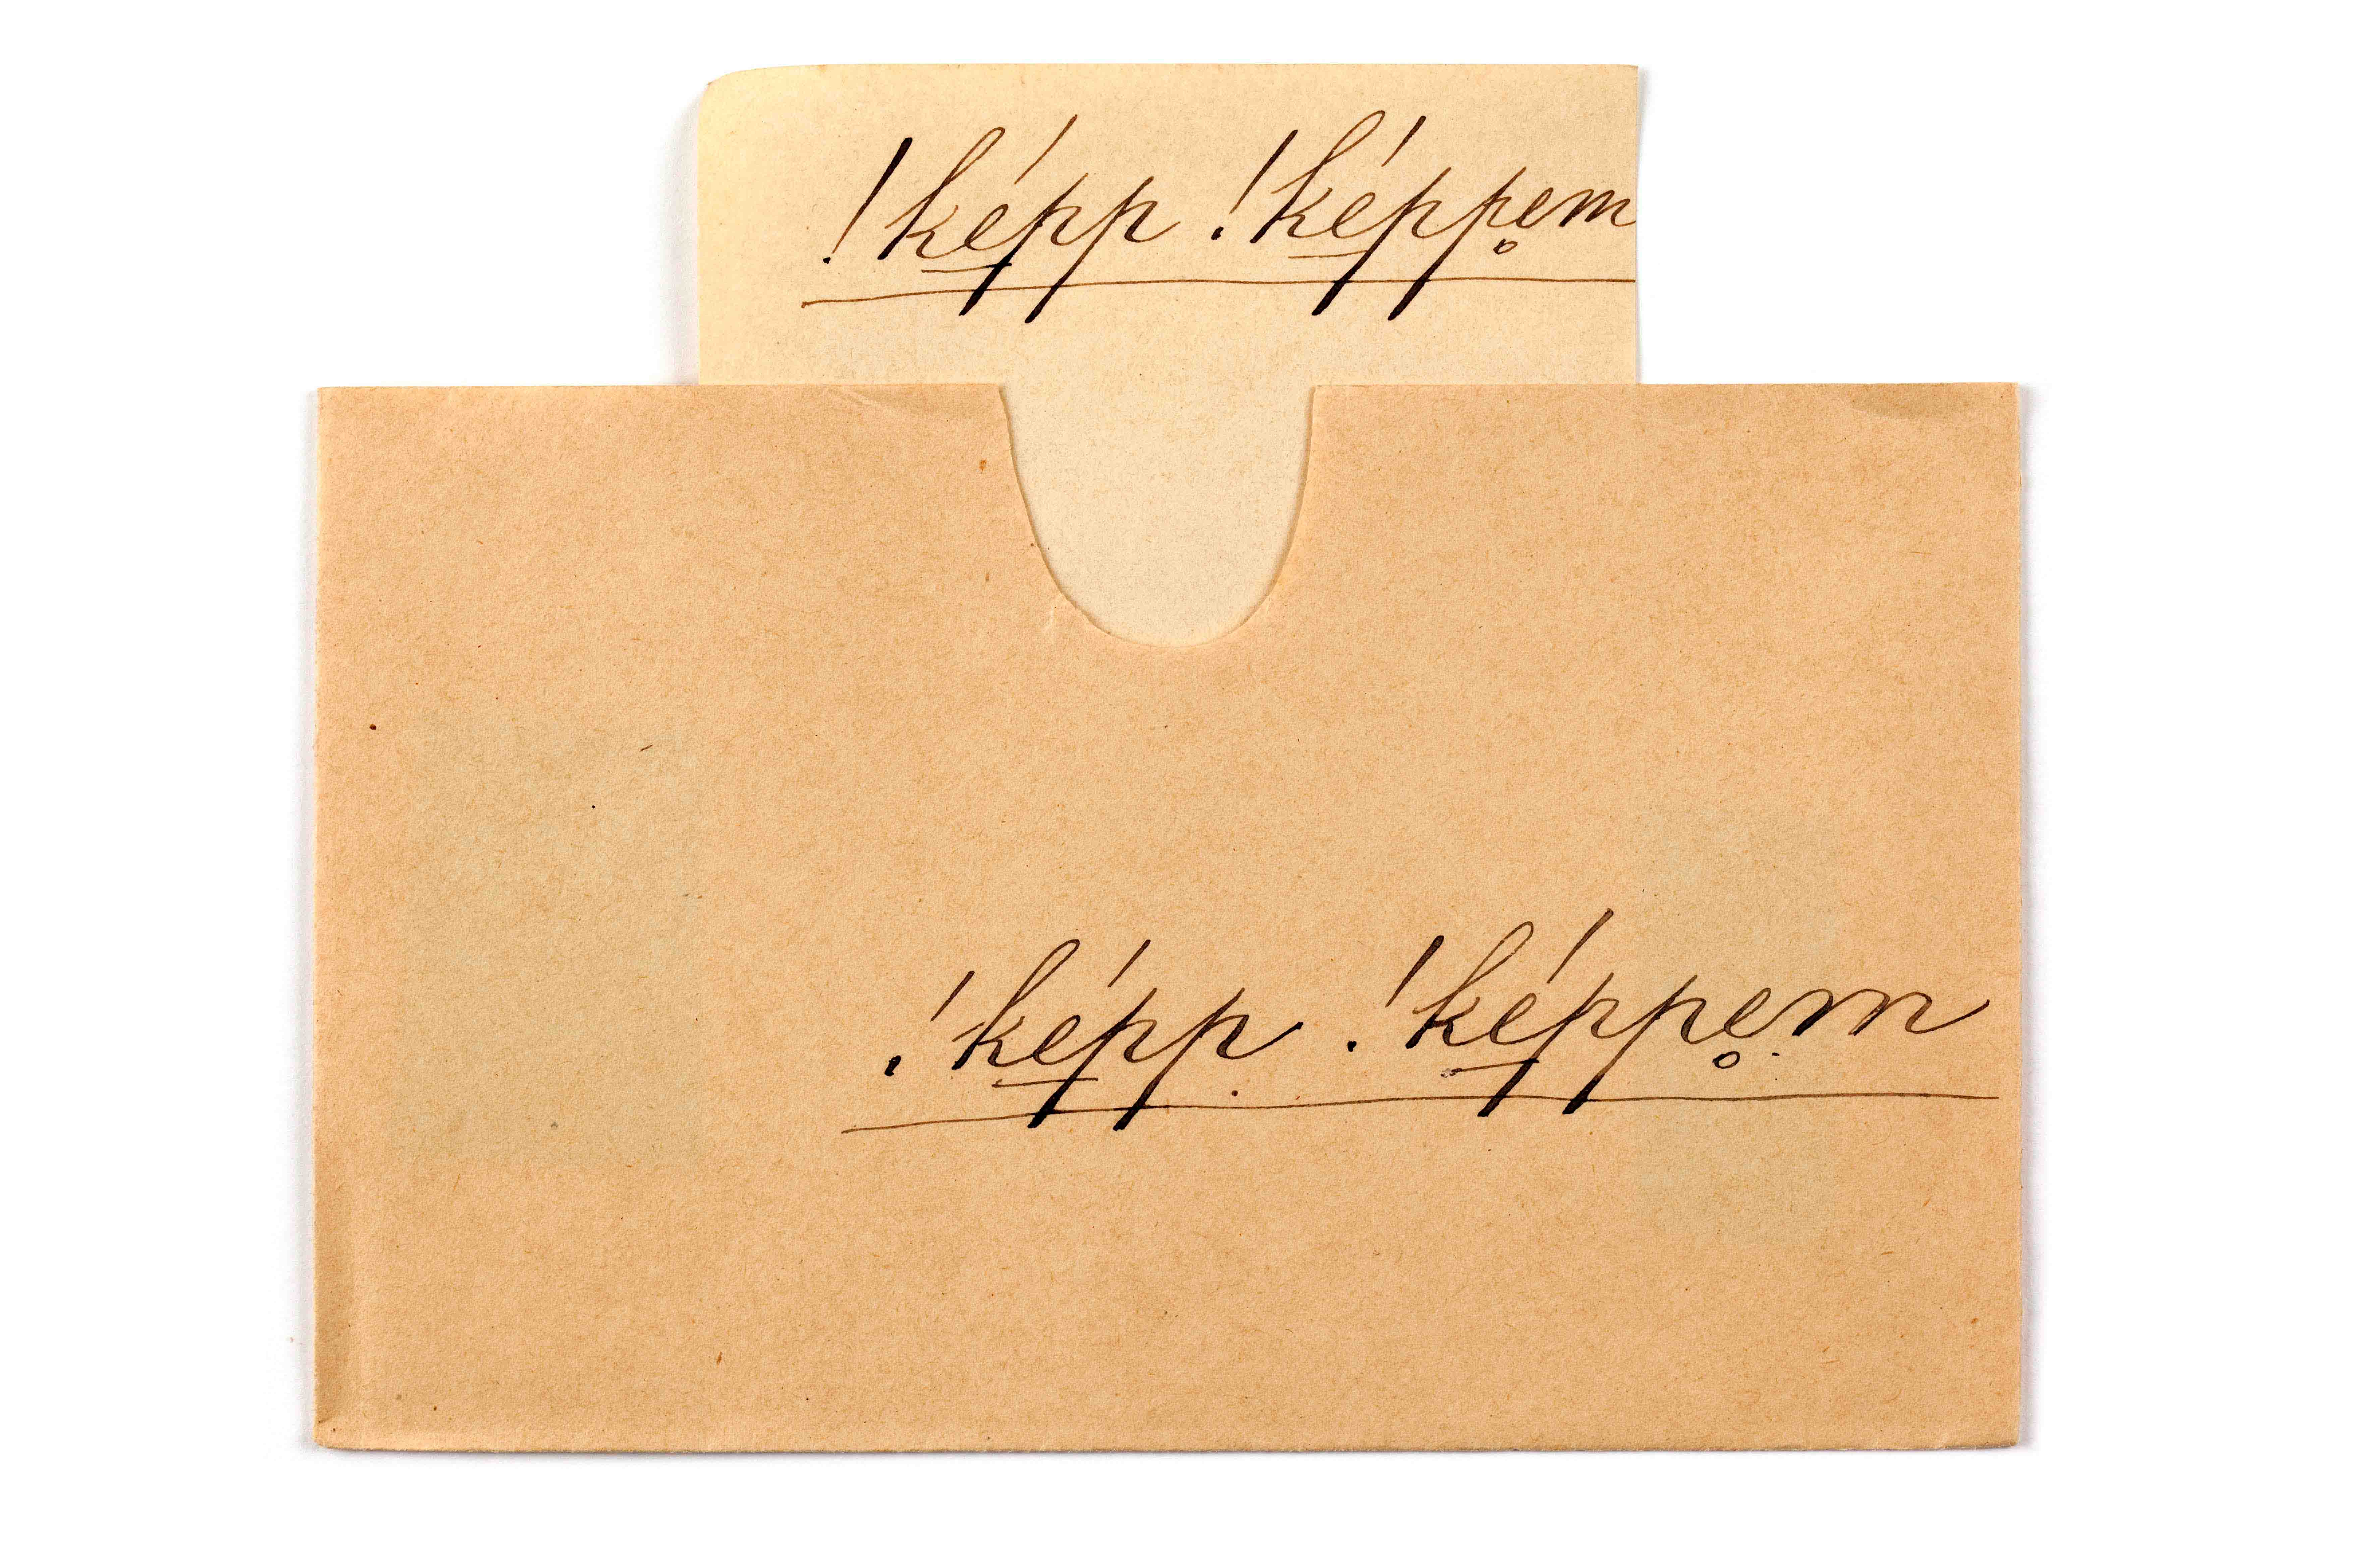 !ḵé̱pp !ḵé̱ppe̥m
!ḵé̱pp . !ḵé̱ppe̥m